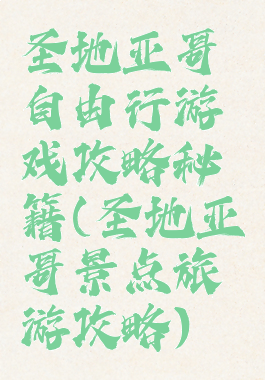 圣地亚哥
自由行游
戏攻略秘
籍(圣地亚
哥景点旅
游攻略)